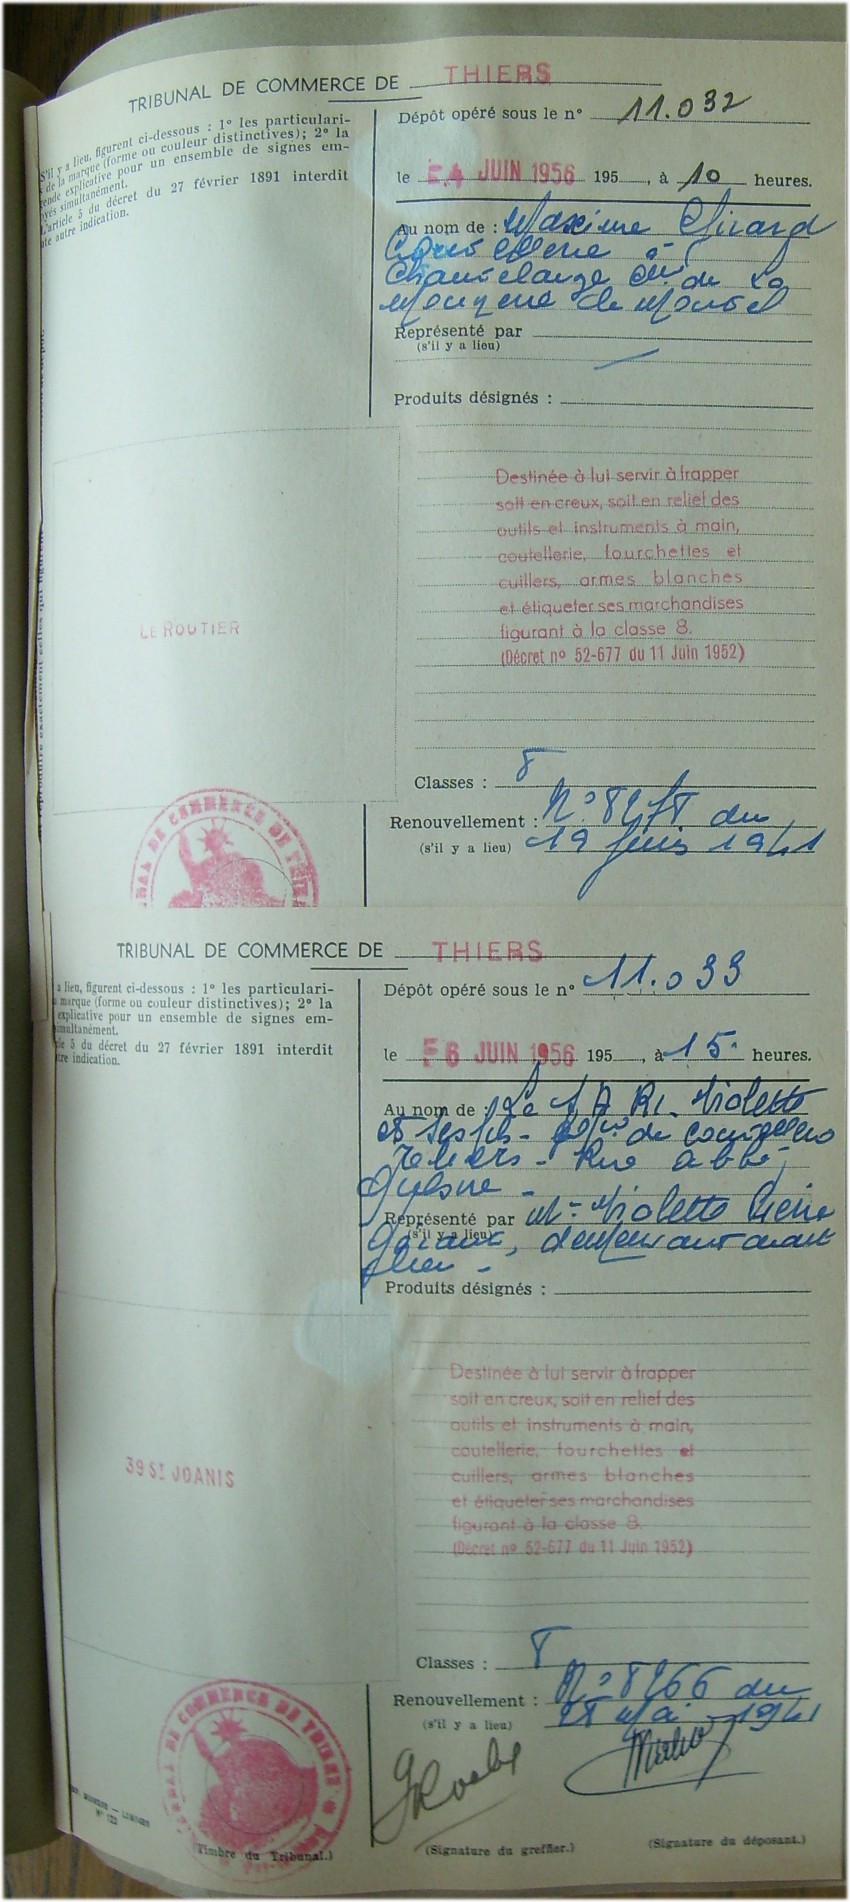 TRIBUNAL DE COMMERCE DE THIERS
S'il y a lieu, figurent ci-dessous : 1° les particulari-
de la marque (forme ou couleur distinctives); 2° la
explicative pour un ensemble de signes em-
simultanément.
L'article 5 du décret du 27 février 1891 interdit
autre indication.
Dépôt opéré sous le n° 11.032
le 4 JUIN 1956 195 , à 10 heures.
Au nom de : Maxime Girard
Coutellerie à
Chantelauze Cne de La
Monnerie le Montel
Représenté par
(s'il y a lieu)
Produits désignés :
Destinée à lui servir à frapper
soit en creux, soit en relief des
outils et instruments à main,
coutellerie, fourchettes et
cuillers, armes blanches
et étiqueter ses marchandises
figurant à la classe 8.
(Décret n° 52-677 du 11 Juin 1952)
LE ROUTIER
Classes : 8
Renouvellement : N° 8278 du
(s'il y a lieu) 19 Juin 1941
DE COMMERCE DE
TRIBUNAL DE COMMERCE DE THIERS
a lieu, figurent ci-dessous : 1° les particulari-
marque (forme ou couleur distinctives); 2° la
explicative pour un ensemble de signes em-
simultanément.
5 du décret du 27 février 1891 interdit
indication.
Dépôt opéré sous le n° 11.033
le 6 JUIN 1956 195 , à 15 heures.
Au nom de : La S A R L Violette
et ses fils - de
Thiers - Rue abbé
Représenté par Mr Violette Pierre
(s'il y a lieu)
Gérant, demeurant audit
lieu -
Produits désignés :
Destinée à lui servir à frapper
soit en creux, soit en relief des
outils et instruments à main,
coutellerie, fourchettes et
cuillers, armes blanches
et étiqueter ses marchandises
figurant à la classe 8.
(Décret n° 52-677 du 11 Juin 1952)
39 ST JOANIS
Classes : 8
Renouvellement : N° 8266 du
(s'il y a lieu) 28 Mai 1941
DE COMMERCE DE THIERS
(Timbre du Tribunal.)
(Signature du greffier.)
(Signature du déposant.)